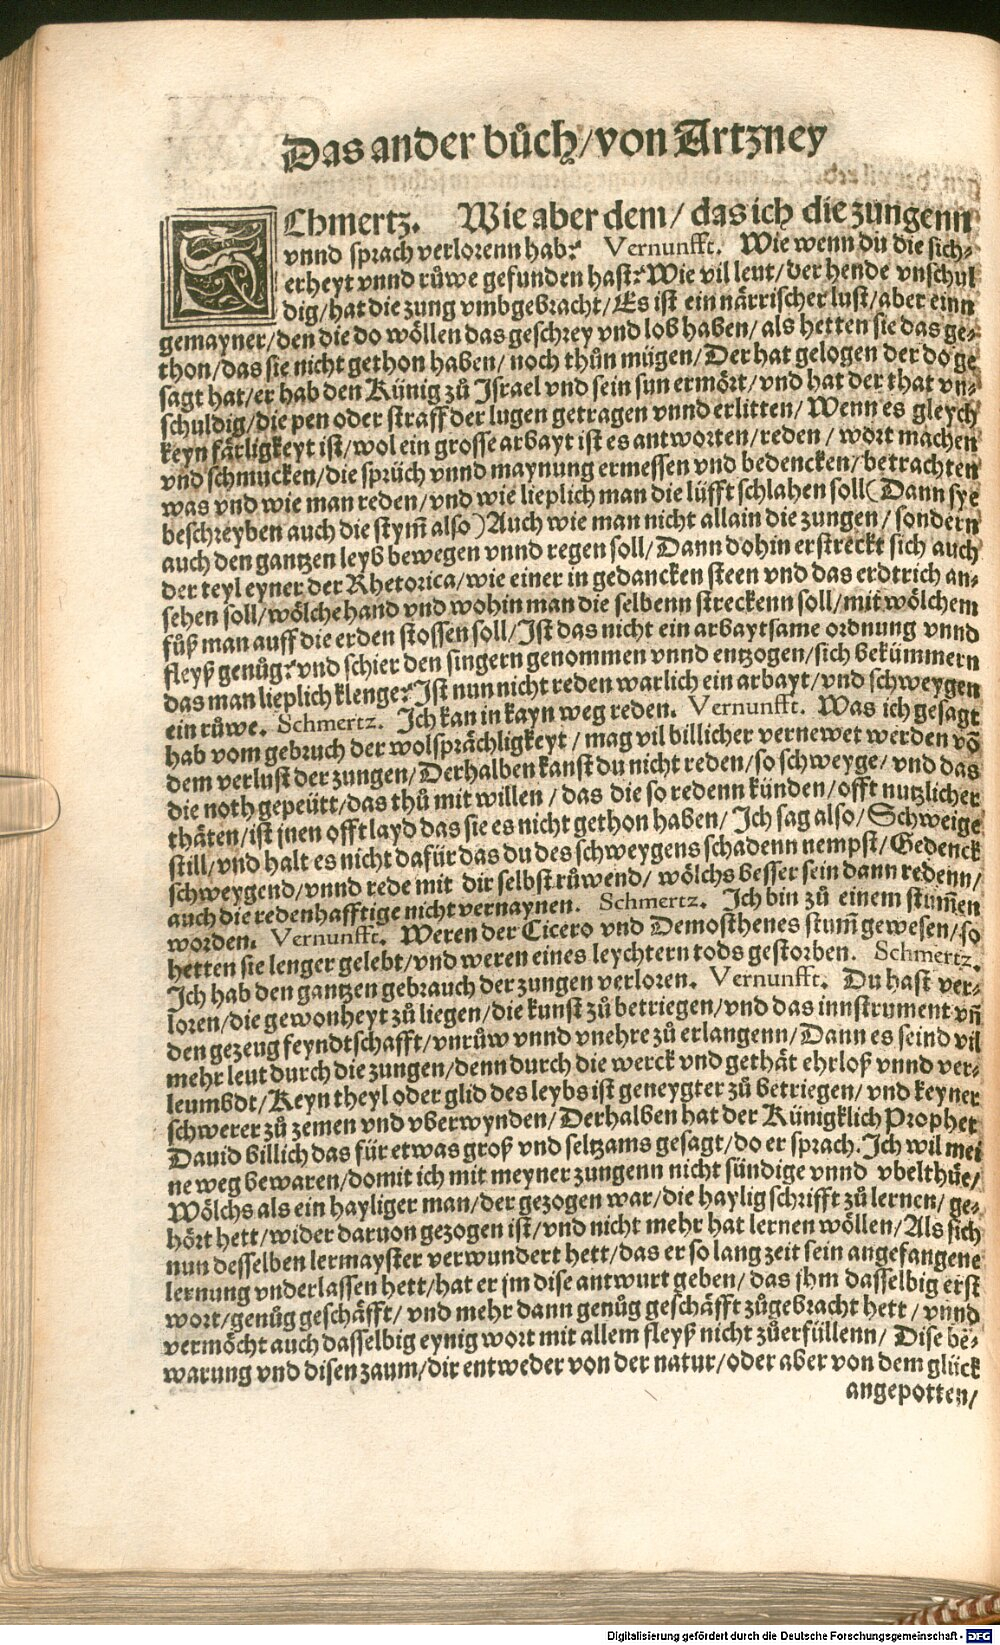 Das ander bůch/von Artzney
SChmertz. Wie aber dem/ das ich die zungenn
vnnd sprach verlorenn hab? Vernunfft. Wie wenn du die sich⸗
erheyt vnnd růwe gefunden hast? Wie vil leut/der hende vnschul
dig/hat die zung vmbgebracht/Es ist ein närrischer lust/aber einn
gemayner/den die do wöllen das geschrey vnd lob haben/als hetten sie das ge⸗
thon/das sie nicht gethon haben/ noch thůn mügen/Der hat gelogen der do ge
sagt hat/er hab den Künig zů Israel vnd sein sun ermört/vnd hat der that vn⸗
schuldig/die pen oder straff der lugen getragen vnnd erlitten/ Wenn es gleych
keyn färligkeyt ist/wol ein grosse arbayt ist es antworten/reden/ wort machen
vnd schmucken/die sprüch vnnd maynung ermessen vnd bedencken/betrachten
was vnd wie man reden/vnd wie lieplich man die lüfft schlahen soll(Dann sye
beschreyben auch die stym̃ also)Auch wie man nicht allain die zungen/ sondern
auch den gantzen leyb bewegen vnnd regen soll/Dann dohin erstreckt sich auch
der teyl eyner der Rhetorica/wie einer in gedancken steen vnd das erdtrich an⸗
sehen soll/wölche hand vnd wohin man die selbenn streckenn soll/mit wölchem
fůß man auff die erden stossen soll/Ist das nicht ein arbaytsame ordnung vnnd
fleyß genůg? vnd schier den singern genommen vnnd entzogen/sich bekümmern
das man lieplich klenge? Ist nun nicht reden warlich ein arbayt/vnd schweygen
ein růwe. Schmertz. Ich kan in kayn weg reden. Vernunfft. Was ich gesagt
hab vom gebruch der wolsprächligkeyt/ mag vil billicher vernewet werden võ
dem verlust der zungen/Derhalben kanst du nicht reden/so schweyge/ vnd das
die noth gepeütt/das thů mit willen/ das die so redenn künden/offt nutzlicher
thäten/ist jnen offt layd das sie es nicht gethon haben/ Ich sag also/ Schweige
still/vnd halt es nicht dafür das du des schweygens schadenn nempst/Gedenck
schweygend/vnnd rede mit dir selbst růwend/ wölchs besser sein dann redenn/
auch die redenhafftige nicht vernaynen. Schmertz. Ich bin zů einem stum̃en
worden. Vernunfft. Weren der Cicero vnd Demosthenes stum̃ gewesen/so
hetten sie lenger gelebt/vnd weren eines leychtern tods gestorben. Schmertz.
Ich hab den gantzen gebrauch der zungen verloren. Vernunfft. Du hast ver⸗
loren/die gewonheyt zů liegen/die kunst zů betriegen/vnd das innstrument vñ
den gezeug feyndtschafft/vnrůw vnnd vnehre zů erlangenn/Dann es seind vil
mehr leut durch die zungen/denn durch die werck vnd gethät ehrloß vnnd ver⸗
leumbdt/Keyn theyl oder glid des leybs ist geneygter zů betriegen/ vnd keyner
schwerer zů zemen vnd vberwynden/Derhalben hat der Künigklich Prophet
Dauid billich das für etwas groß vnd seltzams gesagt/do er sprach. Ich wil mei
ne weg bewaren/domit ich mit meyner zungenn nicht sündige vnnd vbelthüe/
Wölchs als ein hayliger man/der gezogen war/die haylig schrifft zů lernen/ ge⸗
hört hett/wider daruon gezogen ist/vnd nicht mehr hat lernen wöllen/Als sich
nun desselben lermayster verwundert hett/das er so lang zeit sein angefangene
lernung vnderlassen hett/hat er jm dise antwurt geben/ das jhm dasselbig erst
wort/genůg geschäfft/ vnd mehr dann genůg geschäfft zůgebracht hett/ vnnd
vermöcht auch dasselbig eynig wort mit allem fleyß nicht zůerfüllenn/ Dise be⸗
warung vnd disen zaum/dir entweder von der natur/oder aber von dem glück
angepotten/
Digitalisierung gefördert durch die Deutsche Forschungsgemeinschaft - DFG